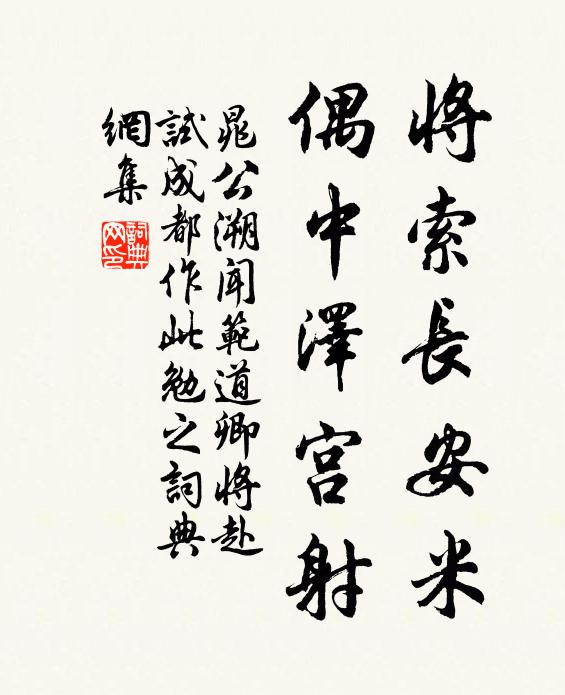 將索長安米
偶中澤宮射
晁公溯聞範道卿將赴
試成都作此勉之詞典
網集
詞典網印